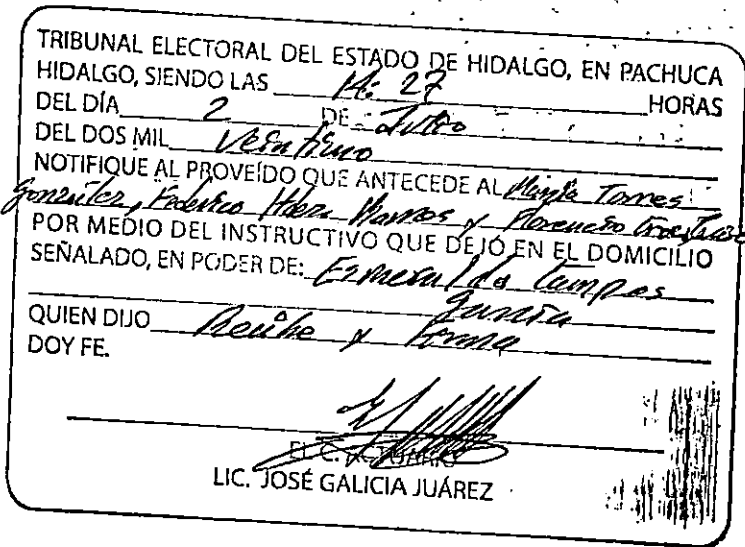 TRIBUNAL ELECTORAL DEL ESTADO DE HIDALGO, EN PACHUCA
HIDALGO, SIENDO LAS 14: 27 HORAS
DEL DÍA 2 DE Julio
DEL DOS MIL Veintiuno
NOTIFIQUE AL PROVEÍDO QUE ANTECEDE AL Torres
González, Federico y Florencio
POR MEDIO DEL INSTRUCTIVO QUE DEJÓ EN EL DOMICILIO
SEÑALADO, EN PODER DE: Esmeralda Campos
García
QUIEN DIJO Recibe y Firma
DOY FE.
EL C. ACTUARIO
LIC. JOSÉ GALICIA JUÁREZ